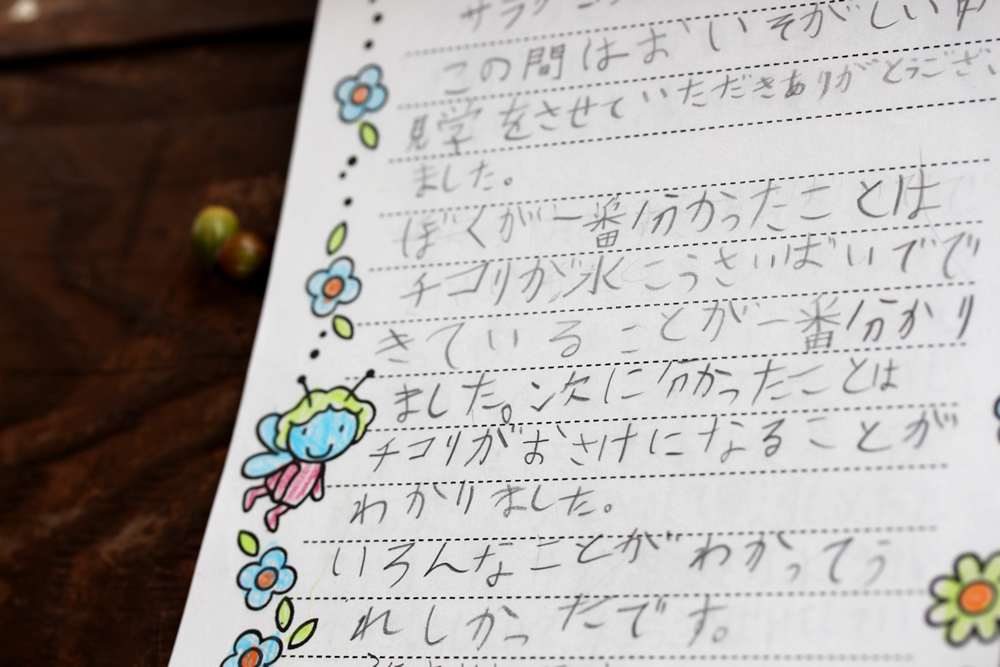 サラダ
この間はおいそがしい中
見学をさせていただきありがとうござい
ました。
ぼくが一番分かったことは
チコリが水こうさいばいでで
きていることが一番分かり
ました。次に分かったことは
チコリがおさけになることが
わかりました。
いろんなことがわかってう
れしかったです。